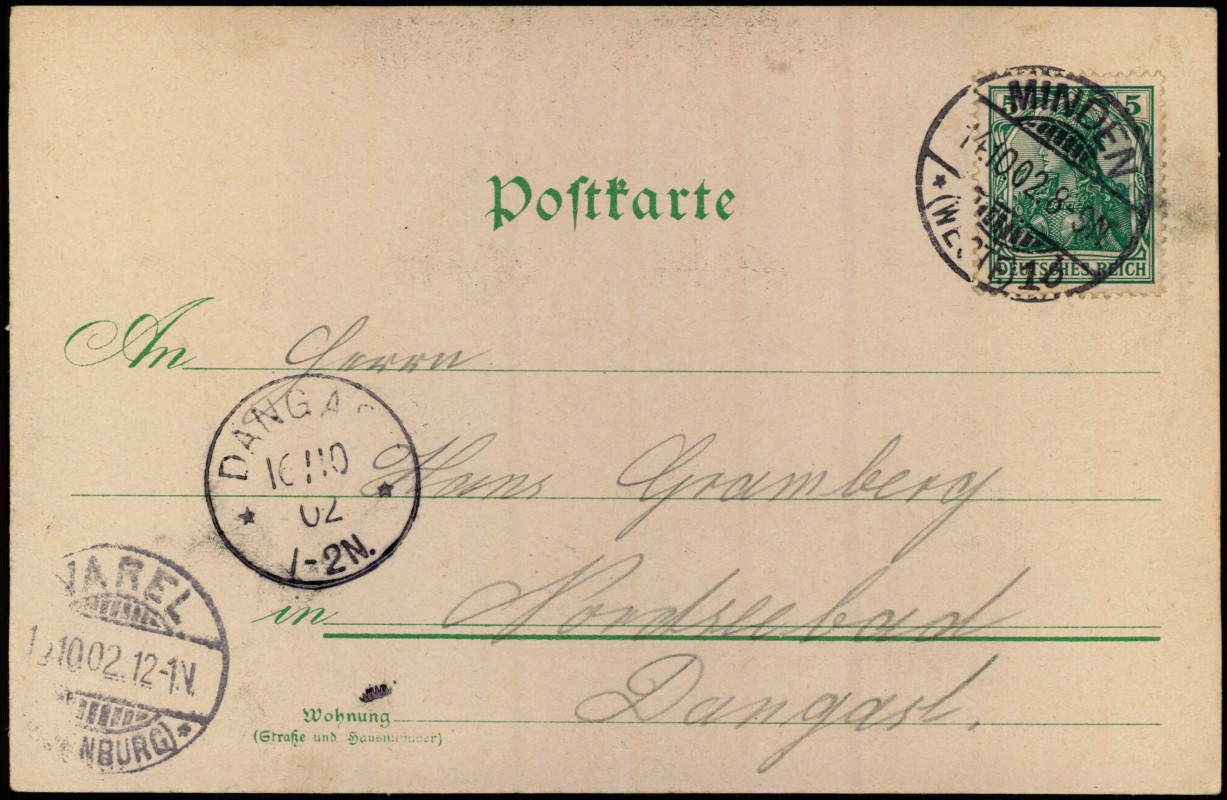 Postkarte
5 5
DEUTSCHES REICH
MINDEN
14.10.02. 8-9N.
* (WESTF.) 1b *
An Herrn
Hans Gramberg
in Nordseebad
Dangast.
Wohnung
(Straße und Hausnummer)
DANGAS
16/10
02
1-2N.
VAREL
10.02.12-1N.
ENBURG) *